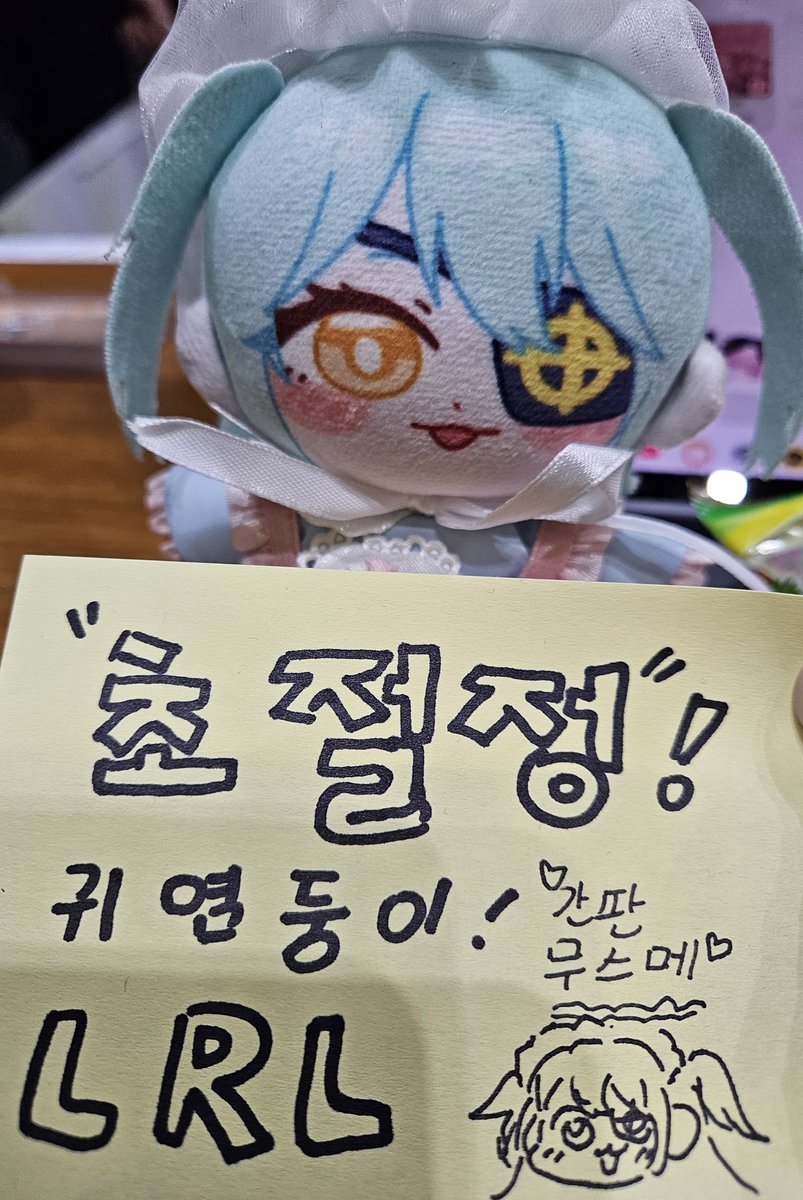 "초절정"!
귀염둥이!
♡간판
무스메♡
LRL